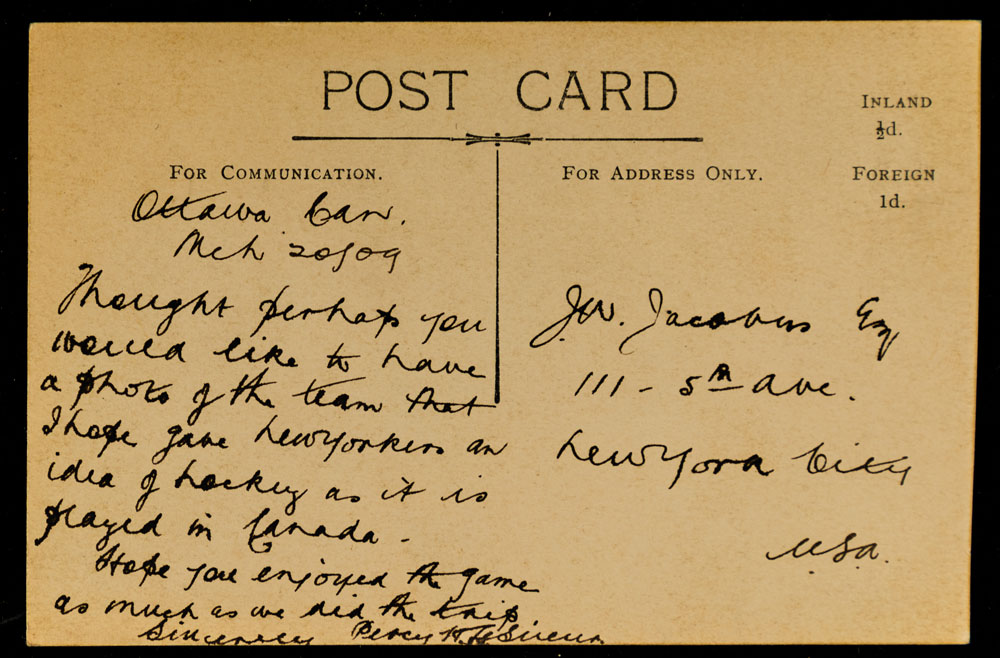 POST CARD
INLAND
½d.
FOREIGN
1d.
FOR COMMUNICATION.
FOR ADDRESS ONLY.
Ottawa Can.
Mch 20/09
Thought perhaps you
would like to have
a photo of the team that
I hope gave New Yorkers an
idea of hockey as it is
played in Canada.
Hope you enjoyed the game
as much as we did the trip
Sincerely Percy H. LeSueur
J.W. Jacobus Esq
111 - 5th Ave.
New York City
U.S.A.